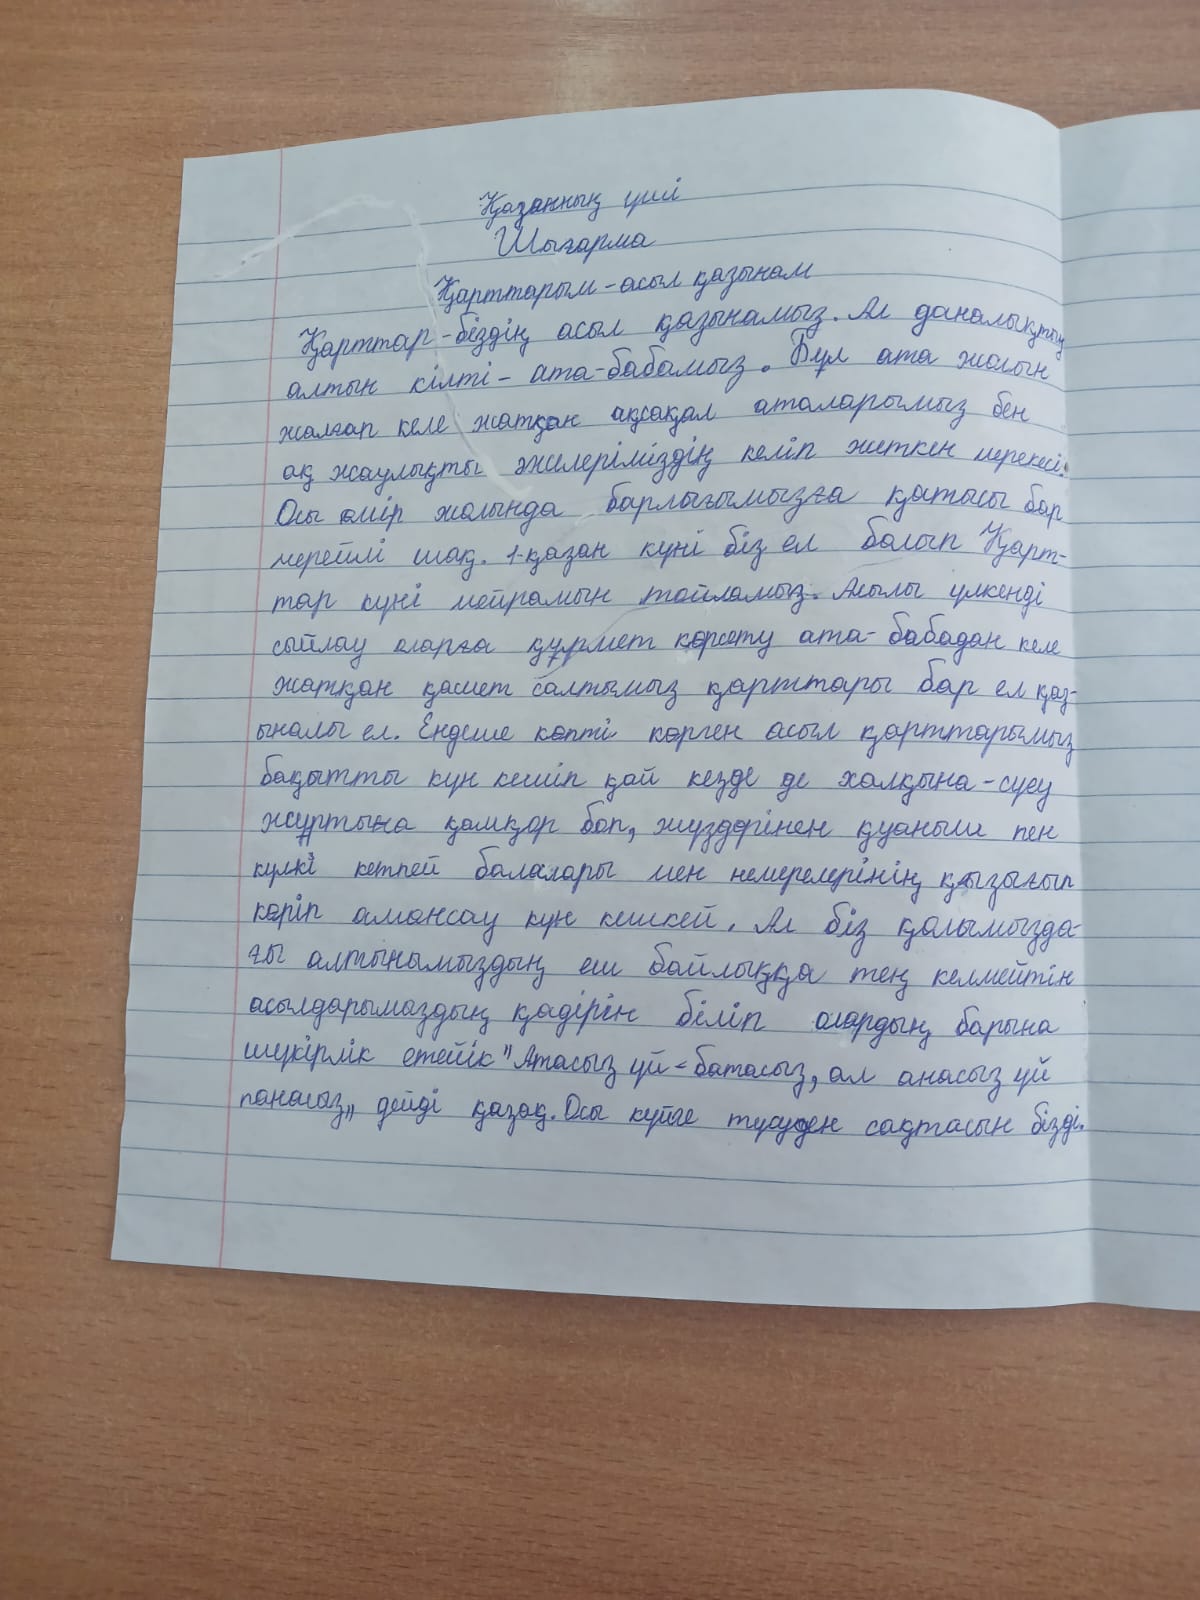 Қазанның үші
Шығарма
Қарттарым-асыл қазынам
Қарттар-біздің асыл қазынамыз. Ал даналықтың
алтын кілті- ата-бабамыз. Бұл ата жолын
жалғап келе жатқан ақсақал аталарымыз бен
ақ жаулықты әжелеріміздің келіп жеткен мерекесі.
Осы өмір жолында барлығымызға қатысы бар
мерейлі шақ. 1-қазан күні біз ел болып Қарт-
тар күні мейрамын тойламыз. Асылы үлкенді
сыйлау оларға құрмет көрсету ата-бабадан келе
жатқан қасиет салтымыз қарттары бар ел қаз-
ыналы ел. Ендеше көпті көрген асыл қарттарымыз
бақытты күн кешіп қай кезде де халқына-сүеу
жұртына қамқор боп, жүздерінен қуаныш пен
күлкі кетпей балалары мен немерелерінің қызығын
көріп амансау күн кешкей. Ал біз қолымызда-
ғы алтынымыздың еш байлыққа тең келмейтін
асылдарымыздың қадірін біліп олардың барына
шүкірлік етейік "Атасыз үй-батасыз, ал анасыз үй
панасыз" дейді қазақ. Осы күйге түсуден сақтасын бізді.